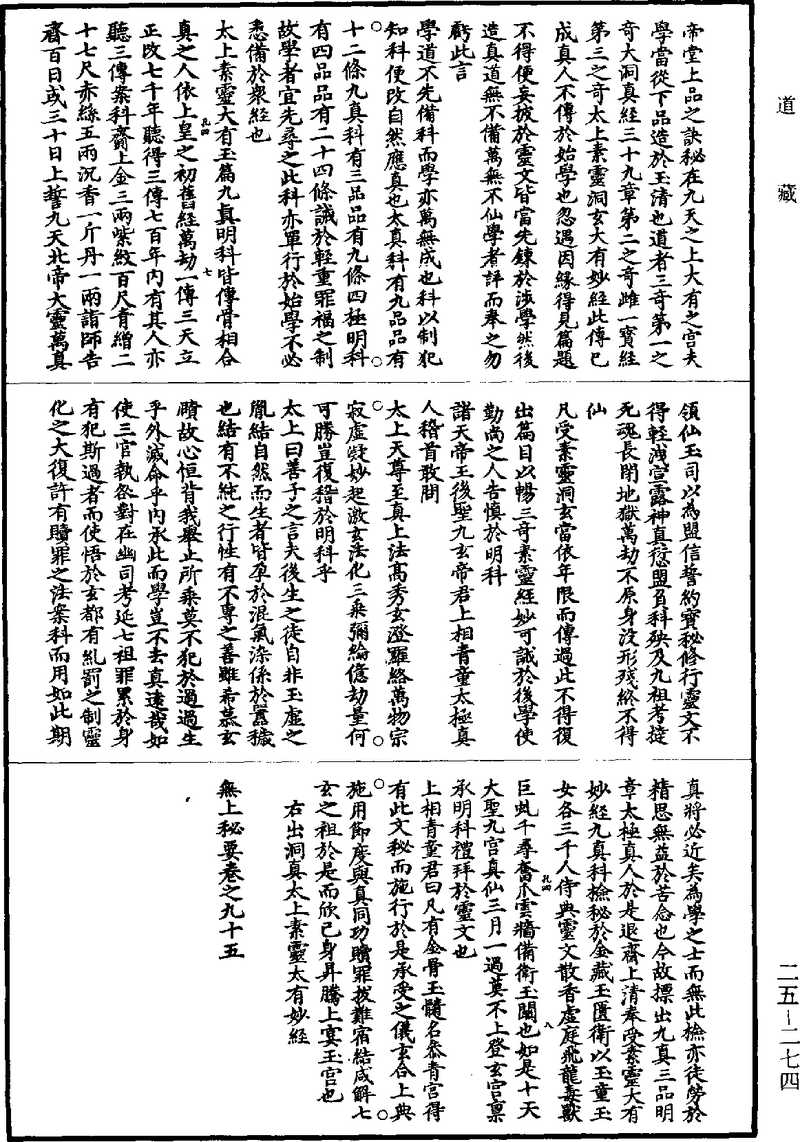 道藏
帝堂上品之訣秘在九天之上大有之宮夫
學當從下品造於玉清也道者三奇第一之
奇大洞真經三十九章第二之奇雌一寶經
第三之奇太上素靈洞玄大有妙經此傳已
成真人不傳於始學也忽遇因緣得見篇題
不得便妄披於靈文皆當先鍊於涉學然後
造真道無不備萬無不仙學者詳而奉之勿
虧此言
學道不先備科而學亦萬無成也科以制犯
知科便改自然應真也太真科有九品品有
十二條九真科有三品品有九條四極明科
有四品品有二十四條誡於輕重罪福之制
故學者宜先尋之此科亦單行於始學不必
悉備於衆經也
太上素靈大有玉篇九真明科皆傳骨相合
真之人依上皇之初舊經萬劫一傳三天立
正改七千年聽得三傳七百年內有其人亦
聽三傳案科齎上金三兩紫紋百尺青繒二
十七尺赤絲五兩沉香一斤丹一兩詣師告
齋百日或三十日上誓九天北帝大靈萬真
孔四
七
領仙玉司以為盟信誓約寶秘修行靈文不
得輕洩宣露神真愆盟負科殃及九祖考撻
死魂長閉地獄萬劫不原身沒形殘終不得
仙
凡受素靈洞玄當依年限而傳過此不得復
出篇目以暢三奇素靈經妙可誡於後學使
勤尚之人告慎於明科
諸天帝王後聖九玄帝君上相青童太極真
人稽首敢問
太上天尊至真上法高秀玄澄羅絡萬物宗
寂虛凝妙起激玄法化三乘彌綸億劫量何
可勝豈復稽於明科乎
太上曰善子之言夫後生之徒自非玉虛之
胤結自然而生者皆孕於混氣染係於嚚穢
也結有不純之行性有不專之善雖希慕玄
賾故心恒背我舉止所乘莫不犯於過過生
乎外滅命乎內承此而學豈不去真遠哉如
使三官執咎對在幽司考延七祖罪累於身
有犯斯過者而使悟於玄都有糺罰之制靈
化之大復許有贖罪之法案科而用如此期
真將必近矣為學之士而無此檢亦徒勞於
精思無益於苦念也今故摽出九真三品明
章太極真人於是退齋上清奉受素靈大有
妙經九真科檢秘於金藏玉匱衛以玉童玉
女各三千人侍典靈文散香虛庭飛龍毒獸
巨虬千尋奮爪雲牆備衛玉闕也如是十天
大聖九宮真仙三月一過莫不上登玄宮稟
承明科禮拜於靈文也
上相青童君曰凡有金骨玉髓名叅青宮得
有此文秘而施行於是承受之儀玄合上典
施用節度與真同功贖罪拔難宿結咸解七
玄之祖於是而欣已身昇騰上宴玉宮也
右出洞真太上素靈太有妙經
孔四
八
無上秘要卷之九十五
二五－二七四